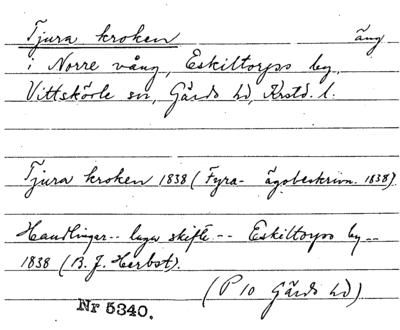 Tjura kroken äng
i Norre vång, Eskiltorps by,
Vittskövle sn, Gärds hd, Krstd. l.
Tjura kroken 1838 (Fyra- ägobeskrivn. 1838).
Handlingar -- laga skifte -- Eskiltorps by --
1838 (B. J. Herbst).
(P 10 Gärds hd)
Nr 5340.